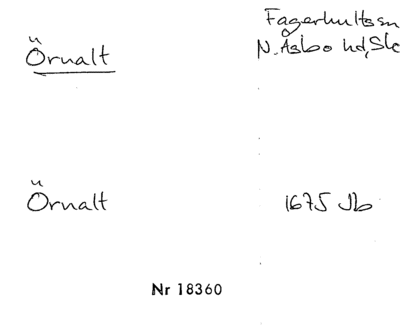 Fagerhultssn
Örnalt N. Åsbo hd, Sk
Örnalt 1675 Jb
Nr 18360